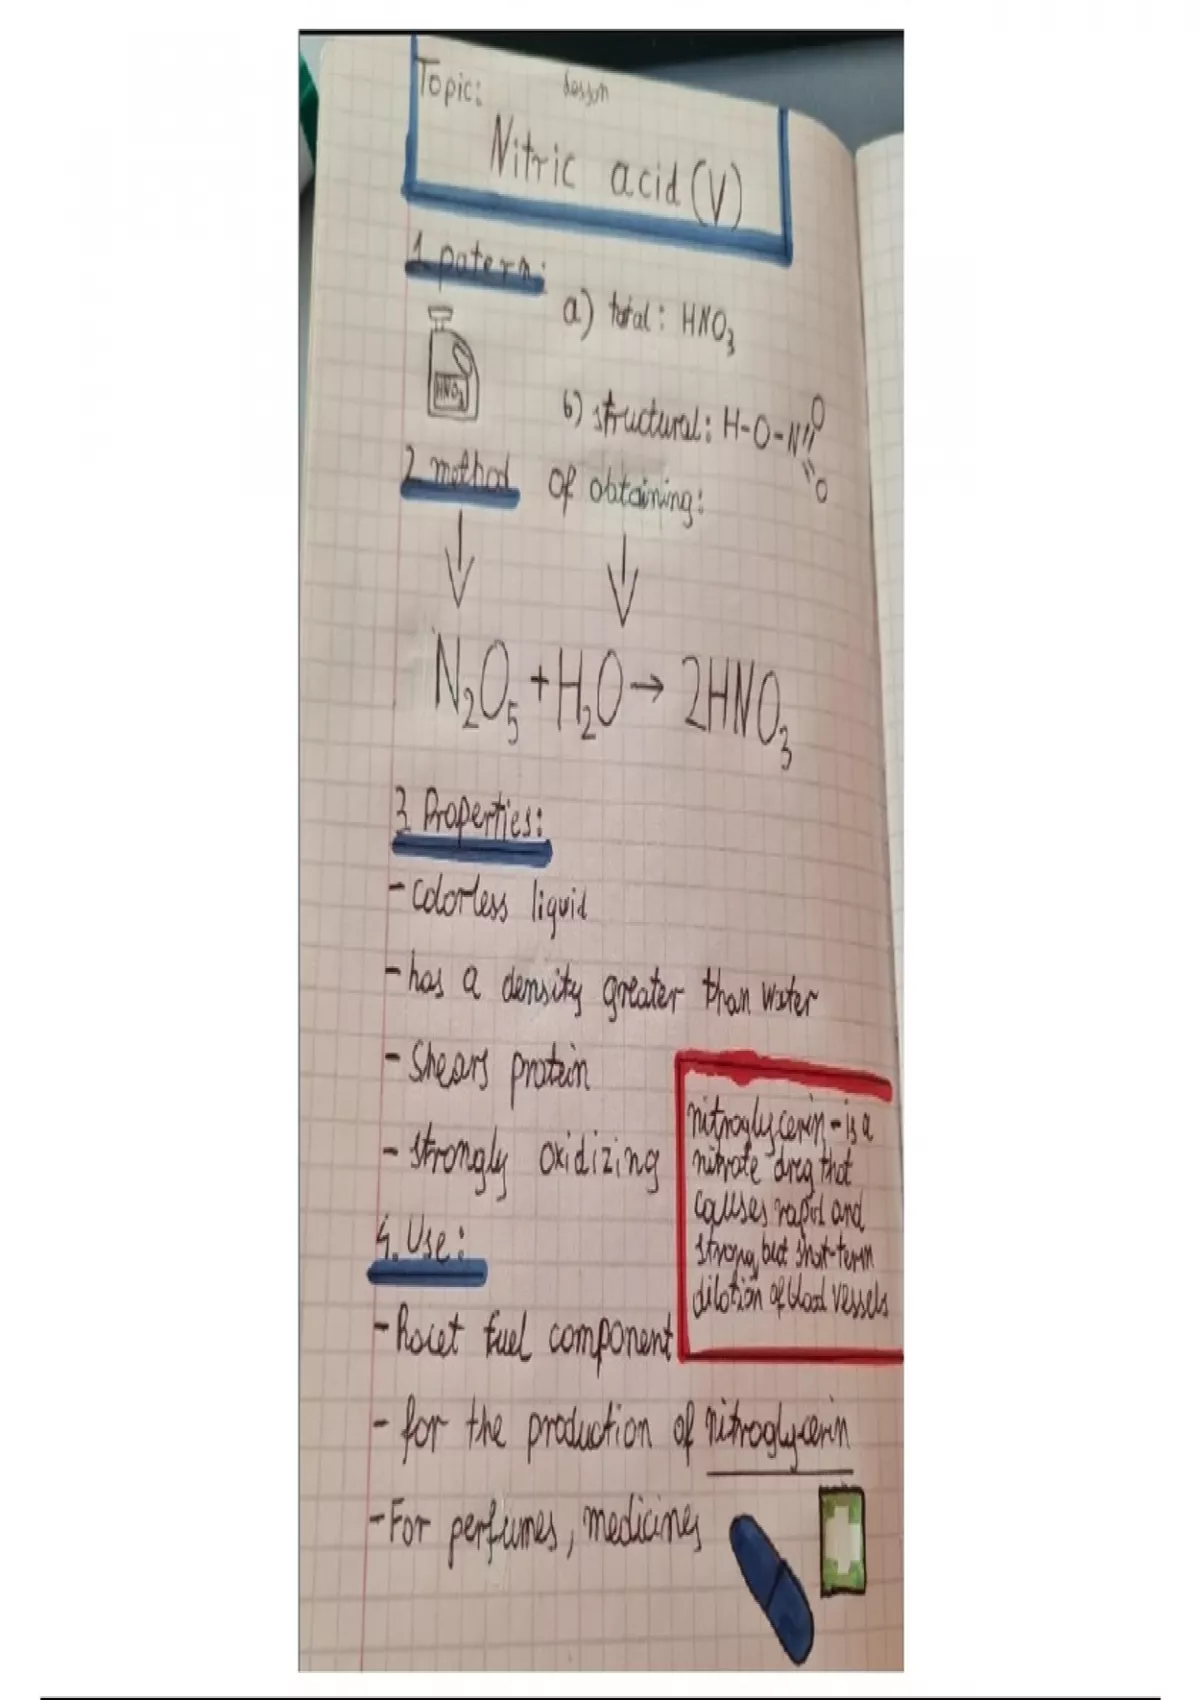 Topic: Lesson
Nitric acid (V)
1 patern:
a) total: HNO3
HNO3
b) structural: H-O-N
O
O
2 method of obtaining:
N2O5 + H2O → 2HNO3
3 Properties:
- colorless liquid
- has a density greater than water
- Shears protein
- strongly oxidizing
nitroglycerin - is a
nitrate drug that
causes rapid and
strong, but short-term
dilation of blood vessels
4. Use:
- Rocet fuel component
- for the production of nitroglycerin
- For perfumes, medicines